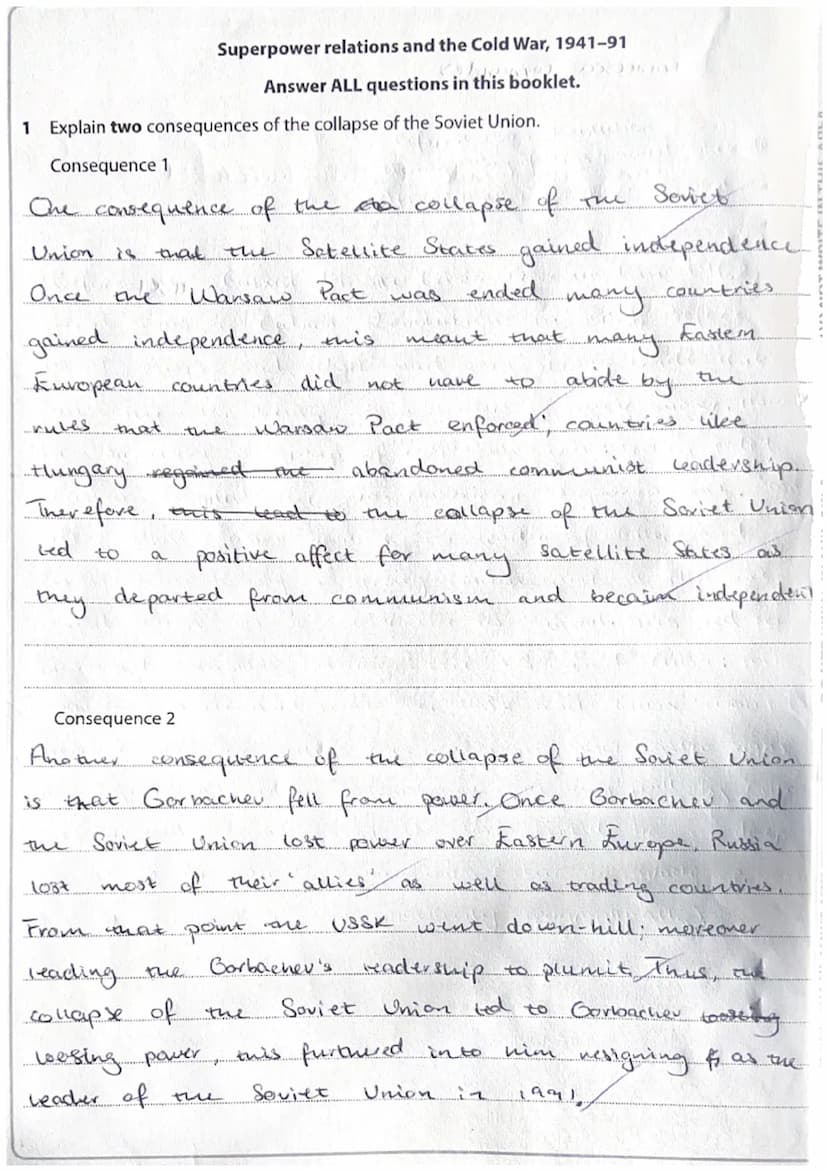 Superpower relations and the Cold War, 1941–91
Answer ALL questions in this booklet.
1 Explain two consequences of the collapse of the Soviet Union.
Consequence 1
One consequence of the collapse of the Soviet
Union is that the Satellite States gained independence
Once the "Warsaw Pact was ended many countries
gained independence, this meant that many Eastern
European countries did not have to abide by the
rules that the Warsaw Pact enforced; countries like
Hungary regained the abandoned communist leadership.
Therefore, this lead to the collapse of the Soviet Union
led to a positive affect for many Satellite States as
they departed from communism and became independent
Consequence 2
Another consequence of the collapse of the Soviet Union
is that Gorbachev fell from power. Once Gorbachev and
the Soviet Union lost power over Eastern Europe, Russia
lost most of their 'allies' as well as trading countries.
From that point the USSR went down-hill; moreover
leading the Gorbachev's leadership to plumit. Thus, the
collapse of the Soviet Union led to Gorbachev
loosing power, this furthured into him resigning as the
leader of the Soviet Union in 1991.